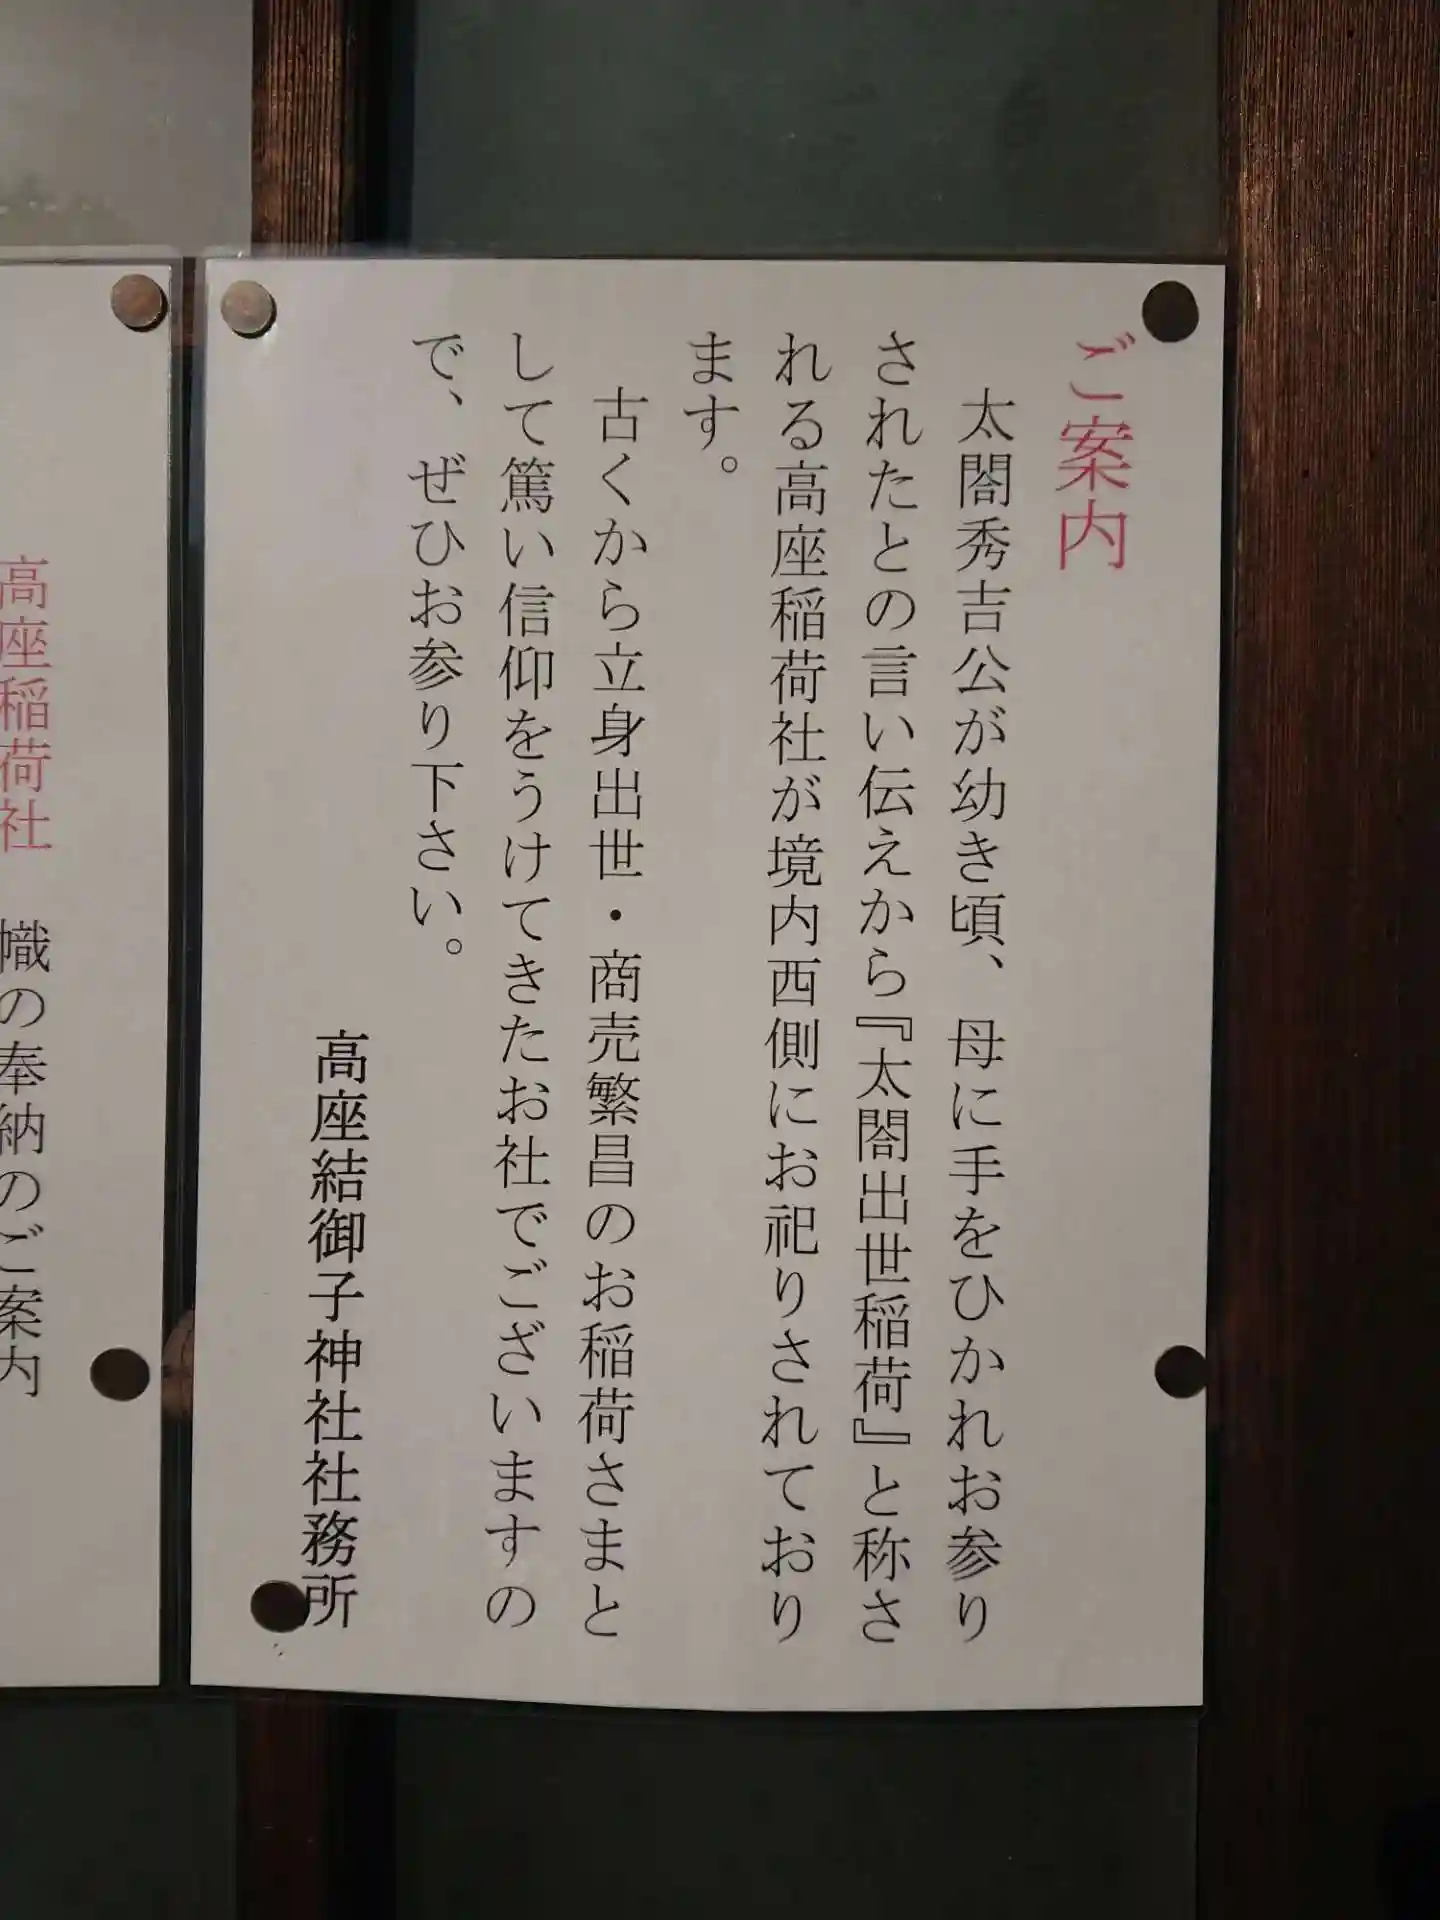 ご案内
太閤秀吉公が幼き頃、母に手をひかれお参り
されたとの言い伝えから『太閤出世稲荷』と称さ
れる高座稲荷社が境内西側にお祀りされており
ます。
古くから立身出世・商売繁昌のお稲荷さまと
して篤い信仰をうけてきたお社でございますの
で、ぜひお参り下さい。
高座結御子神社社務所
高座稲荷社 幟の奉納のご案内